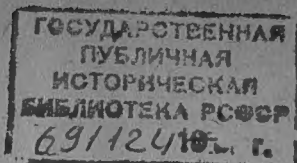 ГОСУДАРСТВЕННАЯ
ПУБЛИЧНАЯ
ИСТОРИЧЕСКАЯ
БИБЛИОТЕКА РСФСР
г.